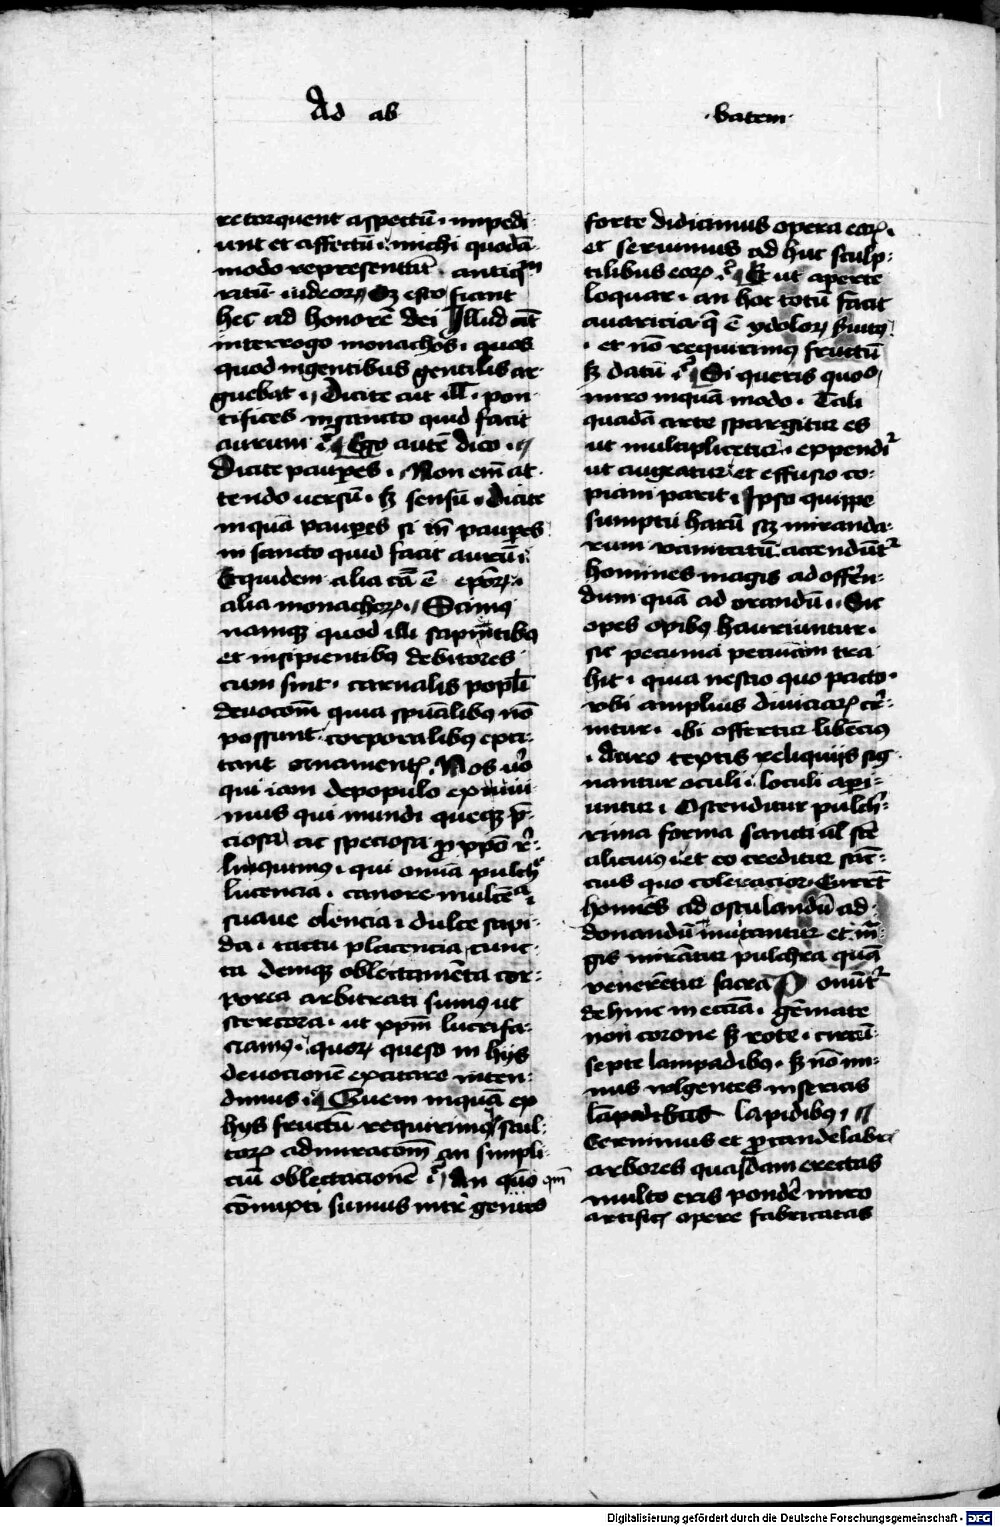 Ad ab
·batem·
retorquent aspectū · impedi-
unt et affectū · michi quodā-
modo representāt · antiqm
ritū iudeorꝝ Sꝫ esto fiant
hec ad honorē dei Illud aūt
interrogo monachos · quos
quod ingentibus gentilis ar-
guebat · Dicite aut ill · pon-
tifices · in sancto quid facit
aurum · Ego autē dico ·
Dicite paupes · Non em̄ at-
tendo uersū · sꝫ sensū · Dicite
inquā paupes si tn̄ paupes
in sancto quid facit aurū ·
Equidem alia cā ē epōrꝝ ·
alia monachorꝝ · Scimꝰ
namqꝫ quod illi sapientibꝰ
et insipientibꝰ debitores
cum sint · carnalis popli
deuocōm̄ quia spūalibꝰ nō
possunt · corporalibꝰ exci-
tant ornamentꝭ · Nos uº
qui iam de populo exiui-
mus qui mundi queqꝫ p̄-
ciosa ac speciosa ꝓ xpō re-
linquimꝰ · qui omīa pulchº
lucencia · canore mulcēa
suaue olencia · dulce sapi-
da · tactu placencia cunc-
ta demqꝫ oblectamēta cor-
porea arbitrati sumꝰ ut
stercora · ut xpm̄ lucrifa-
ciamꝰ · quorꝝ queso in hijs
deuocionē excitare inten-
dimus · Quem inquā ex
hijs fructū requirimꝰ stul-
torꝝ admiracōm̄ an simpli-
ciū oblectacionē · An quō qm̄
cōmixti sumus intr̄ gentes
forte didicimus opera eorꝝ ·
et seruimus ad huc sculp-
tilibus eorꝝ · Et ut aperte
loquar · an hoc totū facit
auaricia q̄ ē ydolorꝝ ẜuitꝰ
· et nō requirimꝰ fructū
sꝫ datū · Si queris quoº
miro inquā modo · Tali
quadā arte spargitur es
ut multiplicetur · expendir̉
ut augeatur et effusio co-
piam parit · Ipso quippe
sumptu harū sꝫ miranda-
rum vanitatū accendūtr̉
homines magis ad offeren-
dum quā ad orandū · Sic
opes opibꝰ hauriuntur ·
sic pecunia pecuniam tra
hit · quia nescio quo pacto ·
vbi amplius diuiciarꝝ cer̄-
nitur · ibi offertur libēciꝰ
· Auro textis reliquijs sig
nantur oculi · loculi aꝑi-
untur · Ostenditur pulch̄-
rima forma sancti al̄ stē
alicuiꝰ · et eo creditur sāc-
cius quo coleracior · Currēt
homies ad osculandū ad-
donandū inuitantur et m̄-
gis mirātur pulchra quā
venerētur sacra P onūtr̉
de hinc in ecc̄ia · gēmate
non corone sꝫ rote · circū-
septe lampadibꝰ · sꝫ nō mi-
nus wlgentes insertis
lāpadibus lapidibꝰ ·
Cernimus et ꝓ candelabr
arbores quasdam erectas
multo eris pondē miro
artificꝭ opere fabricatas
Digitalisierung gefördert durch die Deutsche Forschungsgemeinschaft - DFG